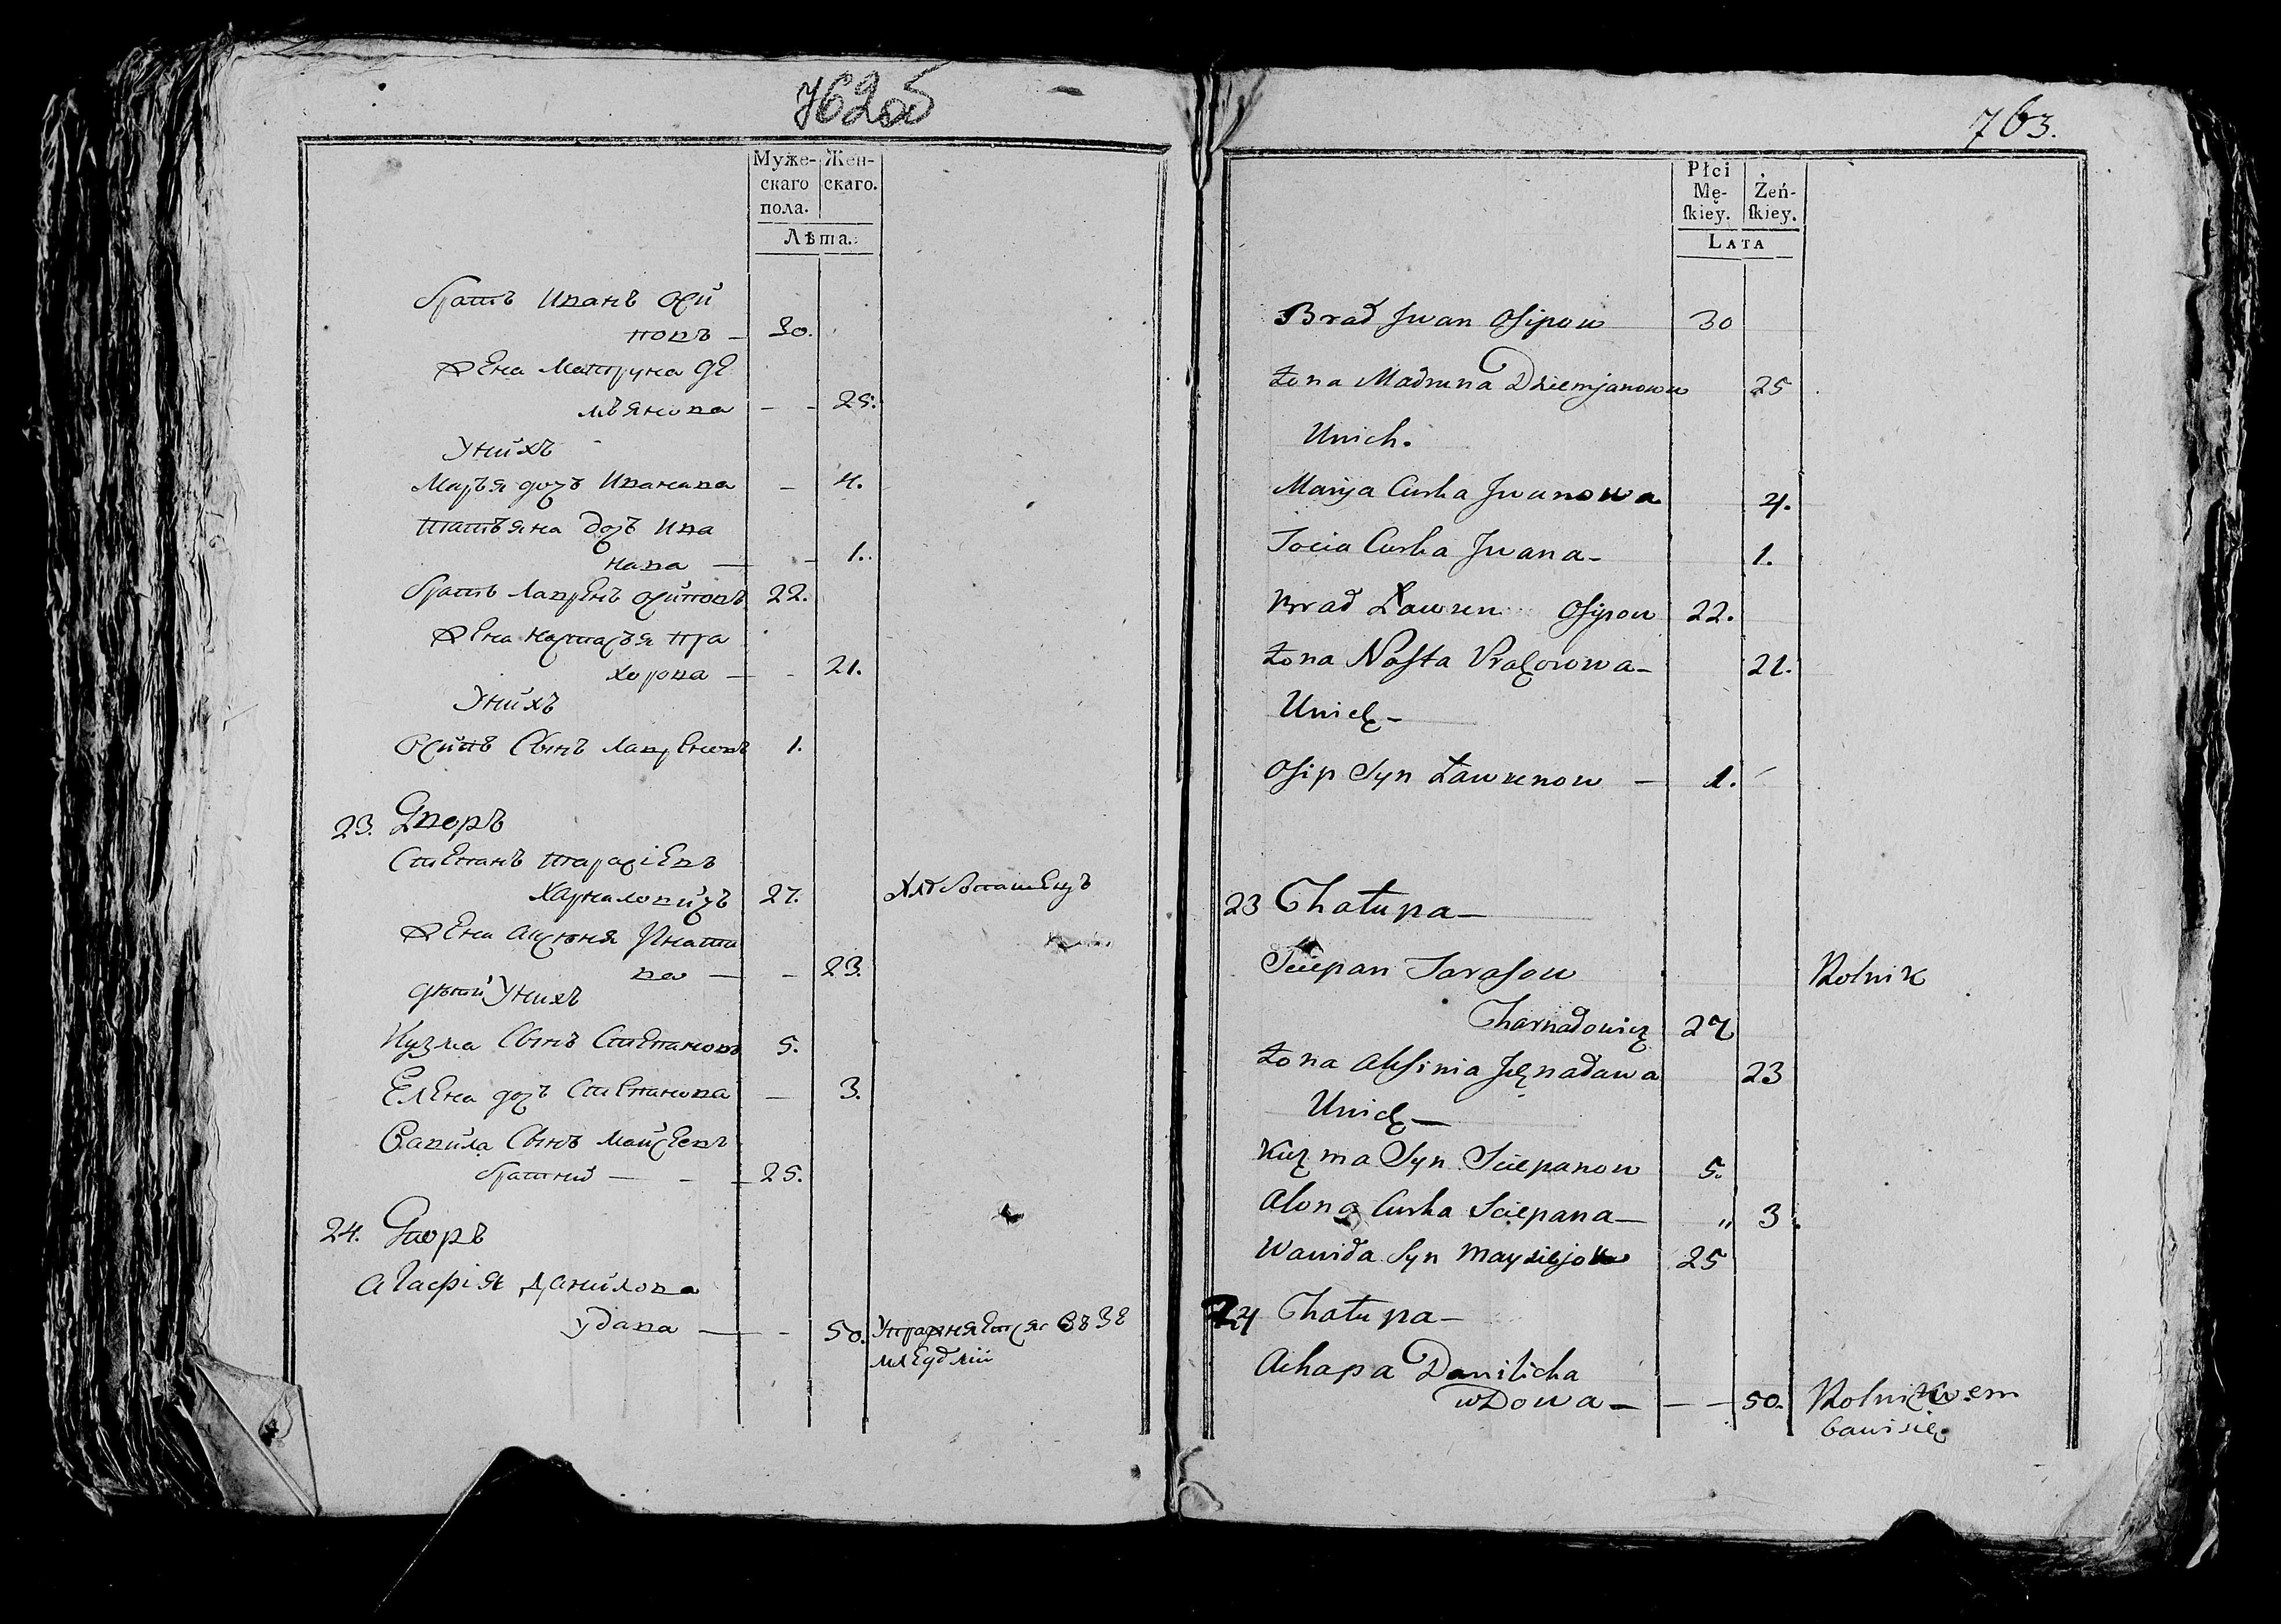 762об
Муже-
скаго
пола.
Жен-
скаго.
Лѣта.
братъ Иванъ Оси
повъ — 30.
жена Матруна де
мьянова — - 25.
У нихъ
Марья дочь Иванава — 4.
татьяна дочь Ива
нава — - 1.
братъ Лавренъ Осиповъ 22.
жена настасья пра
хорова — - 21.
У нихъ
Осипъ Сынъ Лавреновъ 1.
23. Дворъ
Степанъ тарасіевъ
Харналовичъ 27. Хлебопашецъ
жена аксюня Игнати
ва — - 23.
детей У нихъ
Кузма Сынъ Степановъ 5.
Елена дочь Степанова — 3.
Савила Сынъ Майсеевъ
братний — - - 25.
24. Дворъ
Агафія Данилова
удава — - 50. Упражняется въ зе
мледелии
763.
Płci
Mę-
ſkiey.
Żeń-
ſkiey.
LATA
Brad Jwan Osipow 30
żona Madruna Dziemjanowa 25
Unich.
Marya Curka Jwanowa 4.
Tacia Curka Jwana- 1.
Brad Ławren Osipow 22.
żona Nasta Prachorowa- 21.
Unich-
Osip Syn Ławrenow — 1.
23 Chałupa-
Sciepan Tarasow Rolnik
Charnałowicz 27
żona Aksinia Jhnaława 23
Unich-
Kuzma Syn Sciepanow 5.
Alona Curka Sciepana- " 3.
Wawiła Syn Maysiejow 25
24 Chałupa-
Ahapa Danilicha
wDowa- — - 50. Rolnictwem
bawi się.